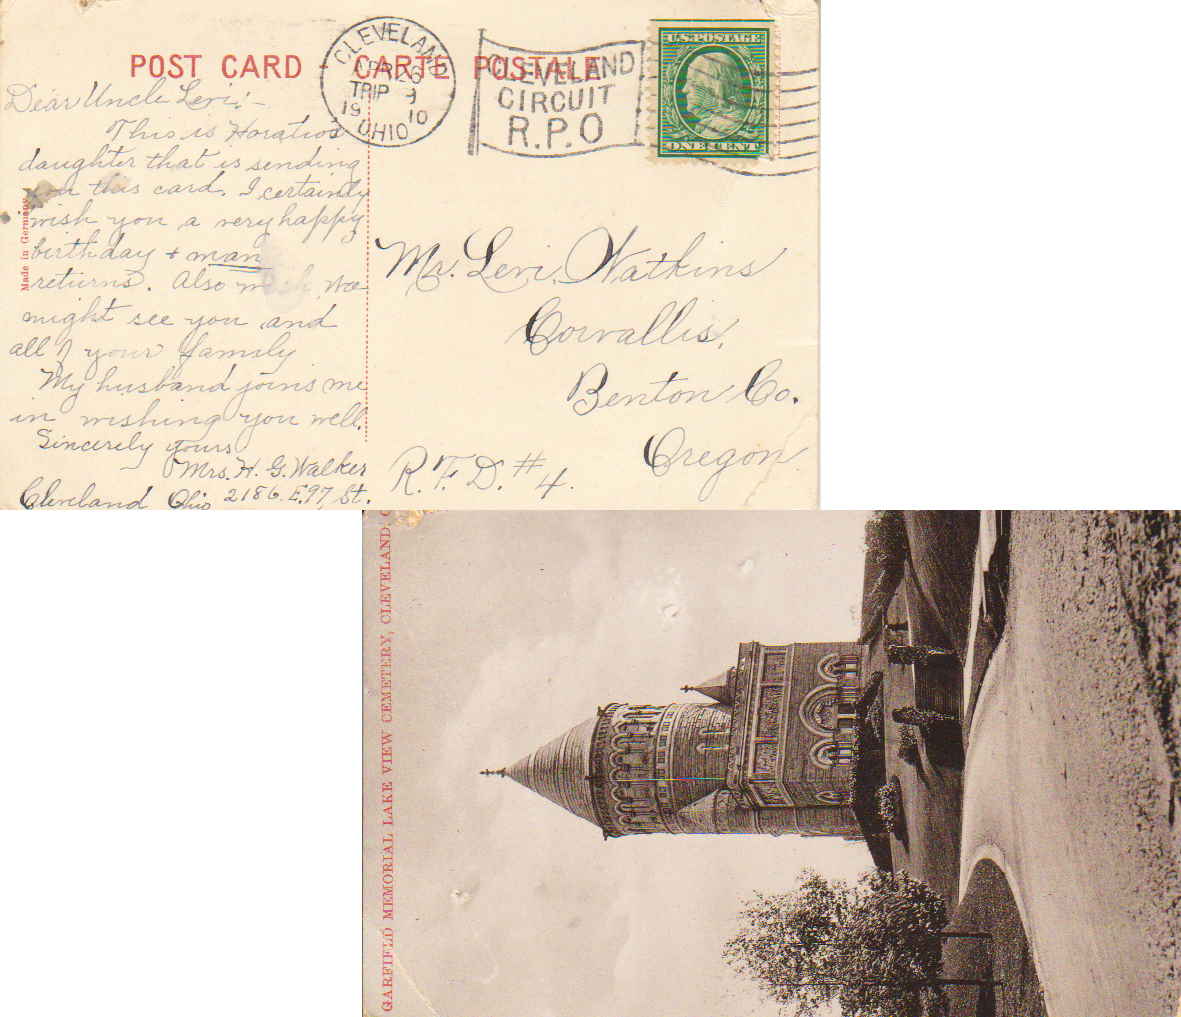 POST CARD · CARTE POSTALE
CLEVELAND
APR 26
TRIP 9
19 10
OHIO
CLEVELAND
CIRCUIT
R.P.O
U.S. POSTAGE
ONE CENT
Dear Uncle Levi:-
This is Horatio's
daughter that is sending
you this card. I certainly
wish you a very happy
birthday + man
returns. Also wish we
might see you and
all of your family
My husband joins me
in wishing you well.
Sincerely yours
Mrs. H. G. Walker
Cleveland Ohio 2186. E. 97, St.
Made in Germany
Mr. Levi Watkins
Corvallis,
Benton Co.
Oregon
R.F.D. #4.
GARFIELD MEMORIAL LAKE VIEW CEMETERY, CLEVELAND, O